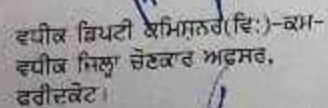 ਵਧੀਕ ਡਿਪਟੀ ਕਮਿਸ਼ਨਰ(ਵਿ:)-ਕਮ-
ਵਧੀਕ ਜਿਲ੍ਹਾ ਚੋਣਕਾਰ ਅਫਸਰ,
ਫਰੀਦਕੋਟ।